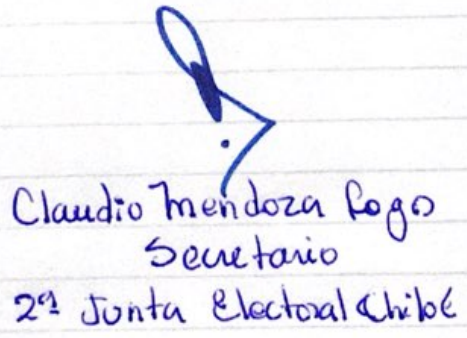 Claudio Mendoza Logo
Secretario
2ª Junta Electoral Chiloé